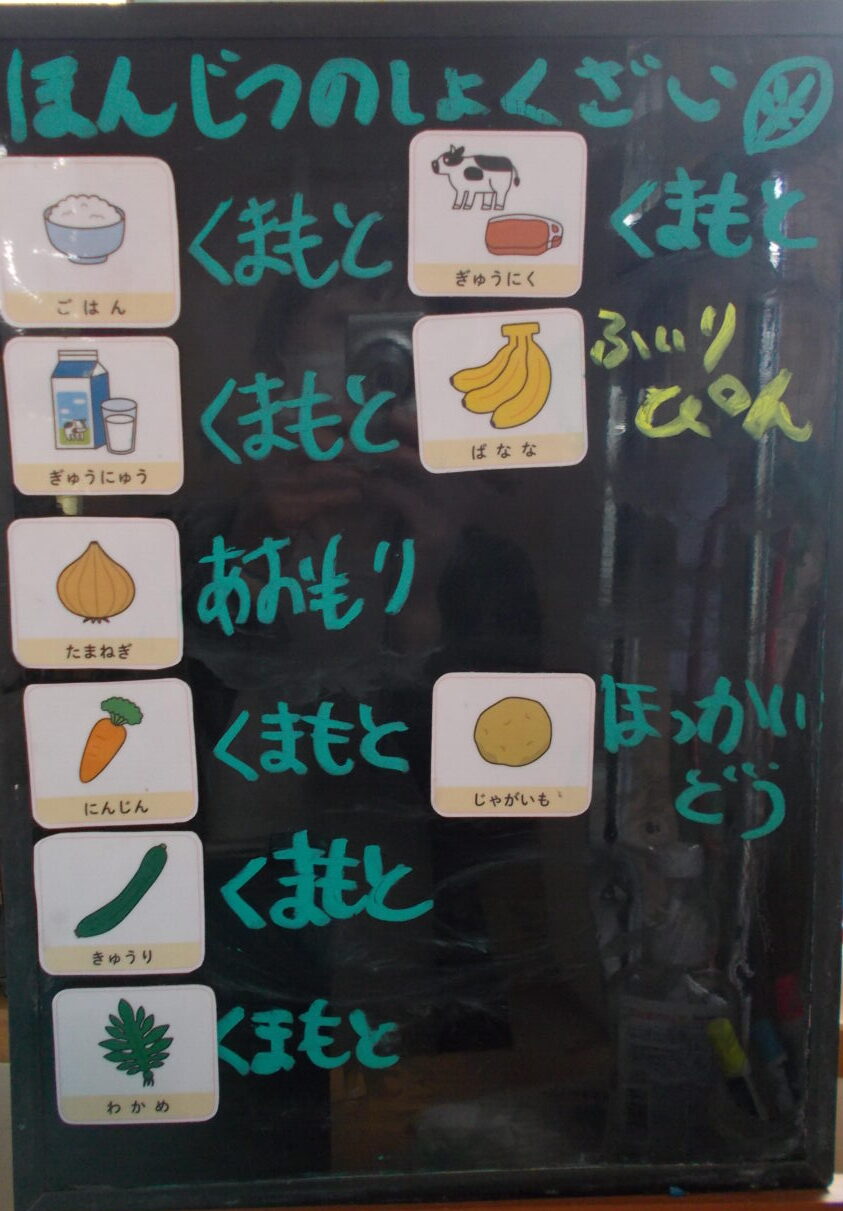 ほんじつのしょくざい
ごはん
くまもと
ぎゅうにゅう
くまもと
たまねぎ
あおもり
にんじん
くまもと
きゅうり
くまもと
わかめ
くまもと
ぎゅうにく
くまもと
ばなな
ふぃり
ぴん
じゃがいも
ほっかい
どう